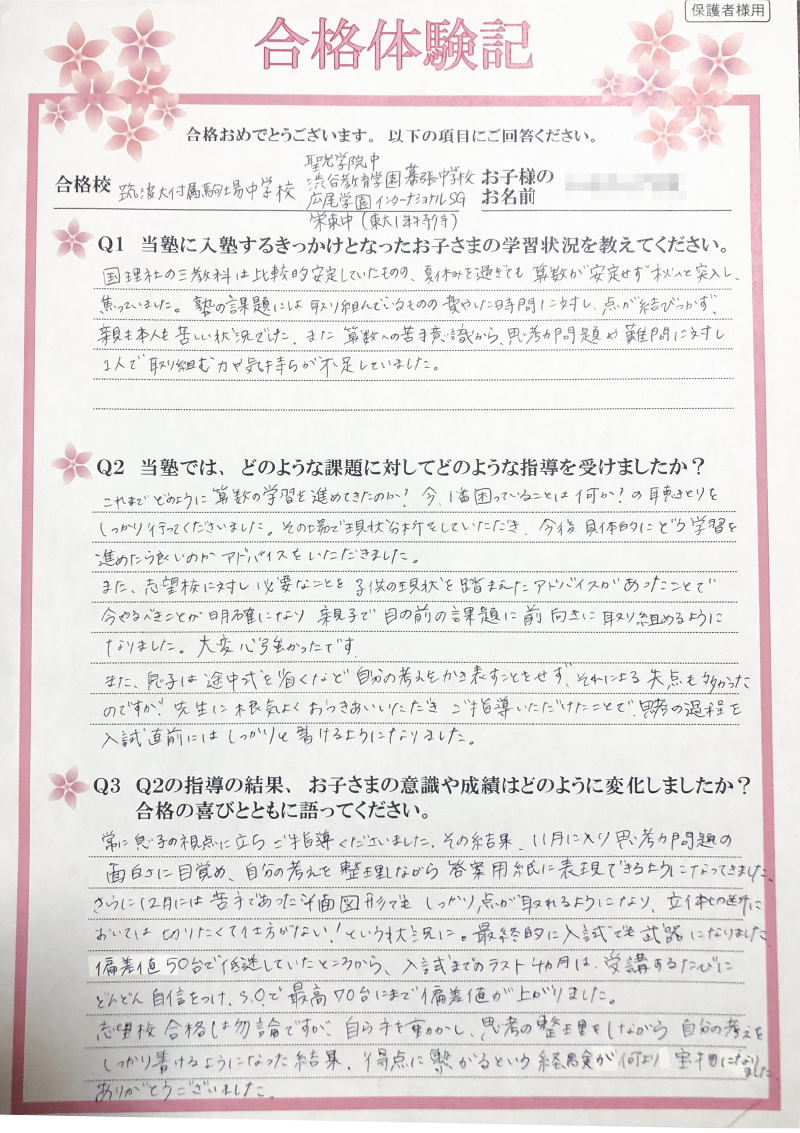 保護者様用
合格体験記
合格おめでとうございます。以下の項目にご回答ください。
合格校 筑波大付属駒場中学校
聖光学院中
渋谷教育学園幕張中学校
広尾学園インターナショナルSG
栄東中(東大1年特待)
お子様の
お名前
Q1 当塾に入塾するきっかけとなったお子さまの学習状況を教えてください。
国理社の三教科は比較的安定していたものの、夏休みを過ぎても算数が安定せず秋へと突入し、
焦っていました。塾の課題には取り組んでいるものの費やした時間に対し、点が結びつかず、
親も本人も苦しい状況でした。また算数への苦手意識から、思考力問題や難問に対し
1人で取り組む力や気持ちが不足していました。
Q2 当塾では、どのような課題に対してどのような指導を受けましたか?
これまでどのように算数の学習を進めてきたのか?今、1番困っていることは何か?の聴きとりを
しっかり行ってくださいました。その場で現状分析をしていただき、今後具体的にどう学習を
進めたら良いのかアドバイスをいただきました。
また、志望校に対し必要なことを子供の現状を踏まえたアドバイスがあったことで
今やるべきことが明確になり 親子で目の前の課題に前向きに取り組めるように
なりました。大変心強かったです
また、息子は途中式を省くなど自分の考えをかき表すことをせず、それによる失点も多かった
のですが、先生に根気よくおつきあいいただきご指導いただけたことで、思考の過程を
入試直前にはしっかりと書けるようになりました。
Q3 Q2の指導の結果、お子さまの意識や成績はどのように変化しましたか?
合格の喜びとともに語ってください。
常に息子の視点に立ちご指導くださいました。その結果、11月に入り思考力問題の
面白さに目覚め、自分の考えを整理しながら答案用紙に表現できるようになってきました。
さらに12月には苦手であった平面図形でもしっかり点が取れるようになり、立体切断に
おいては切りたくて仕方がない!という状況に。最終的に入試でも武器になりました
偏差値50台で低迷していたところから、入試までのラスト4ヵ月は、受講するたびに
どんどん自信をつけ、S.Oで最高70台にまで偏差値が上がりました。
志望校合格は勿論ですが、自ら手を動かし、思考の整理をしながら自分の考えを
しっかり書けるようになった結果、得点に繋がるという経験が何より宝物になりました
ありがとうございました。